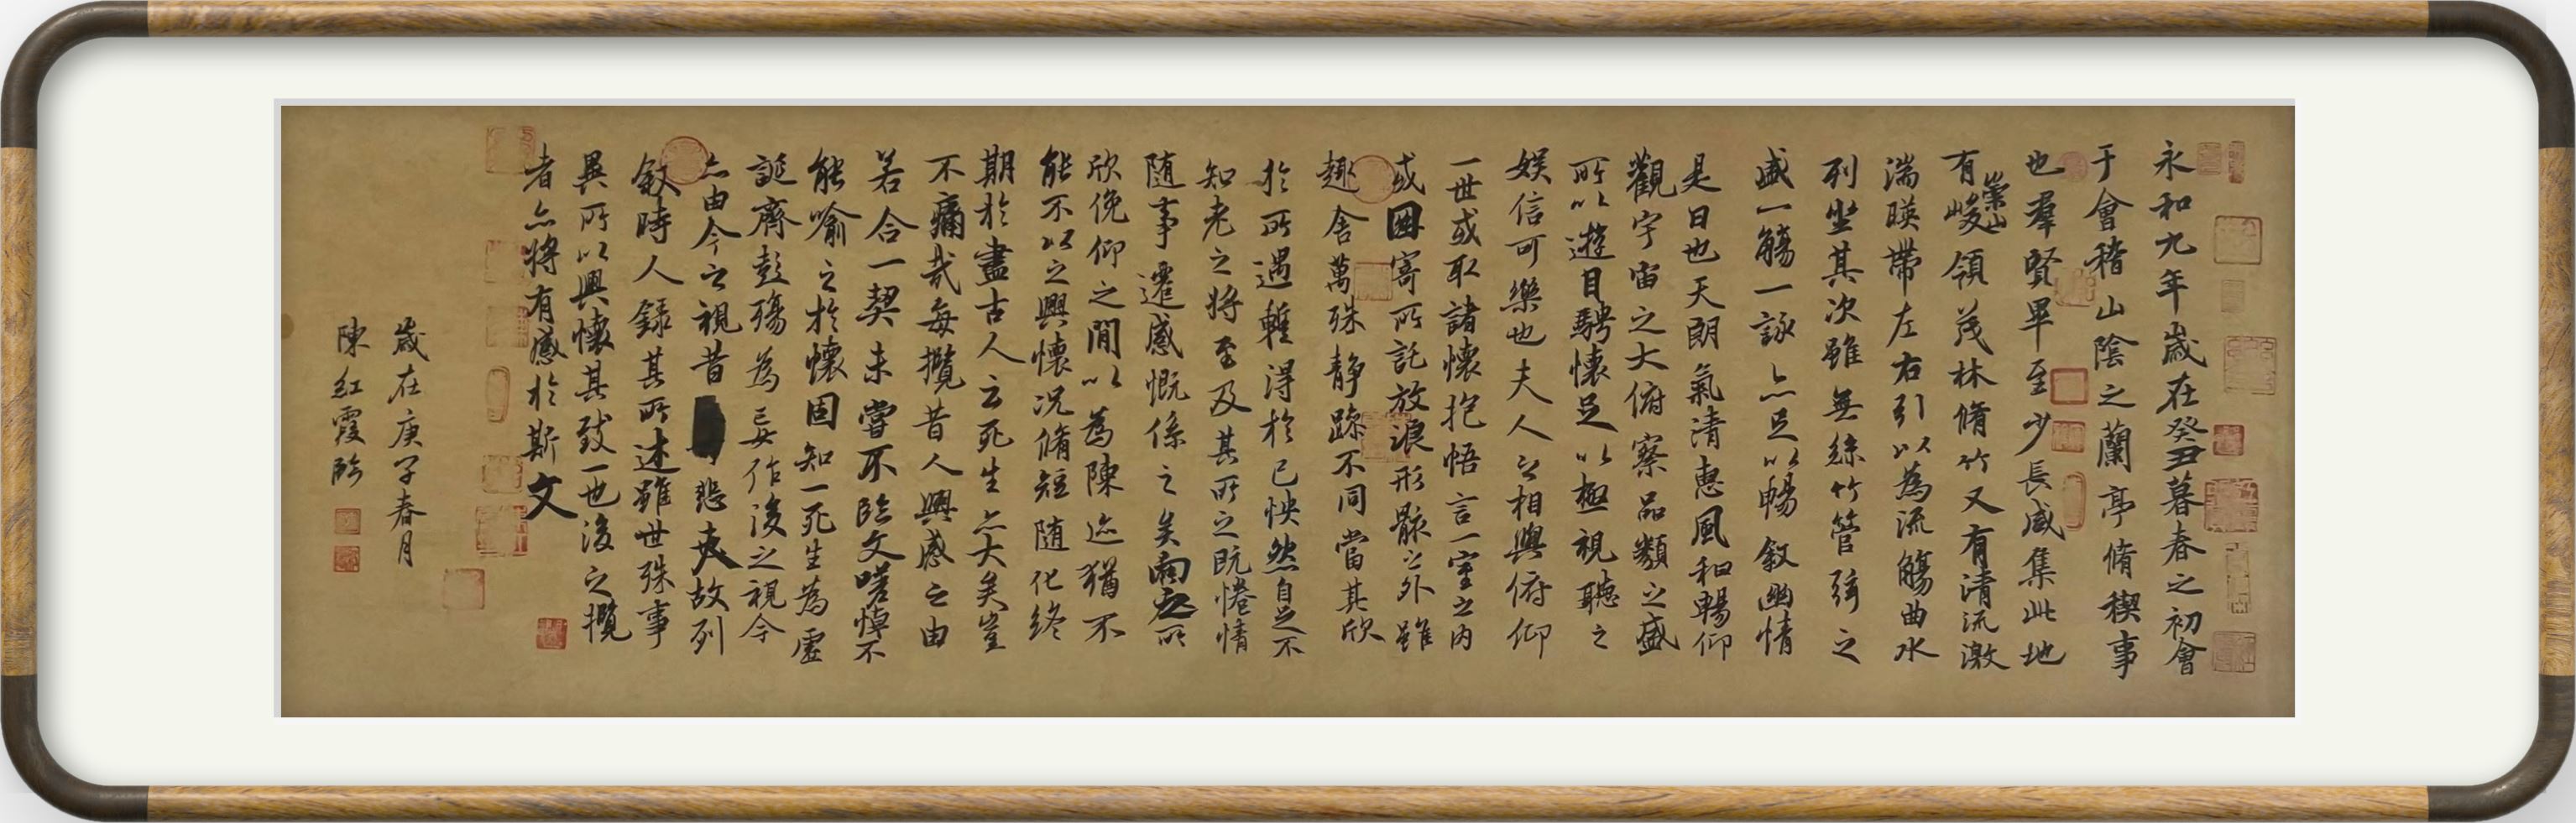 永和九年歲在癸丑暮春之初會
于會稽山陰之蘭亭脩稧事
也羣賢畢至少長咸集此地
有崇山峻領茂林脩竹又有清流激
湍暎帶左右引以為流觴曲水
列坐其次雖無絲竹管弦之
盛一觴一詠亦足以暢敘幽情
是日也天朗氣清惠風和暢仰
觀宇宙之大俯察品類之盛
所以遊目騁懷足以極視聽之
娛信可樂也夫人之相與俯仰
一世或取諸懷抱悟言一室之內
或因寄所託放浪形骸之外雖
趣舍萬殊静躁不同當其欣
於所遇蹔得於己怏然自足不
知老之將至及其所之既惓情
随事遷感慨係之矣向之所
欣俛仰之間以為陳迹猶不
能不以之興懷況脩短随化終
期於盡古人云死生亦大矣豈
不痛哉每攬昔人興感之由
若合一契未嘗不臨文嗟悼不
能喻之於懷固知一死生為虛
誕齊彭殤為妄作後之視今
亦由今之視昔悲夫故列
敘時人錄其所述雖世殊事
異所以興懷其致一也後之攬
者亦將有感於斯文
歲在庚子春月
陳紅霞臨